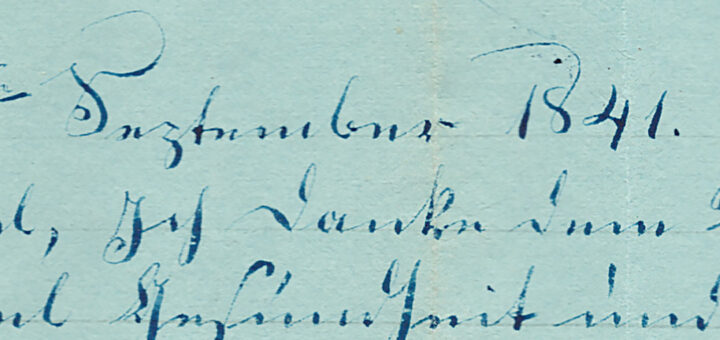 September 1841.
Ich danke dem
Gesundheit und